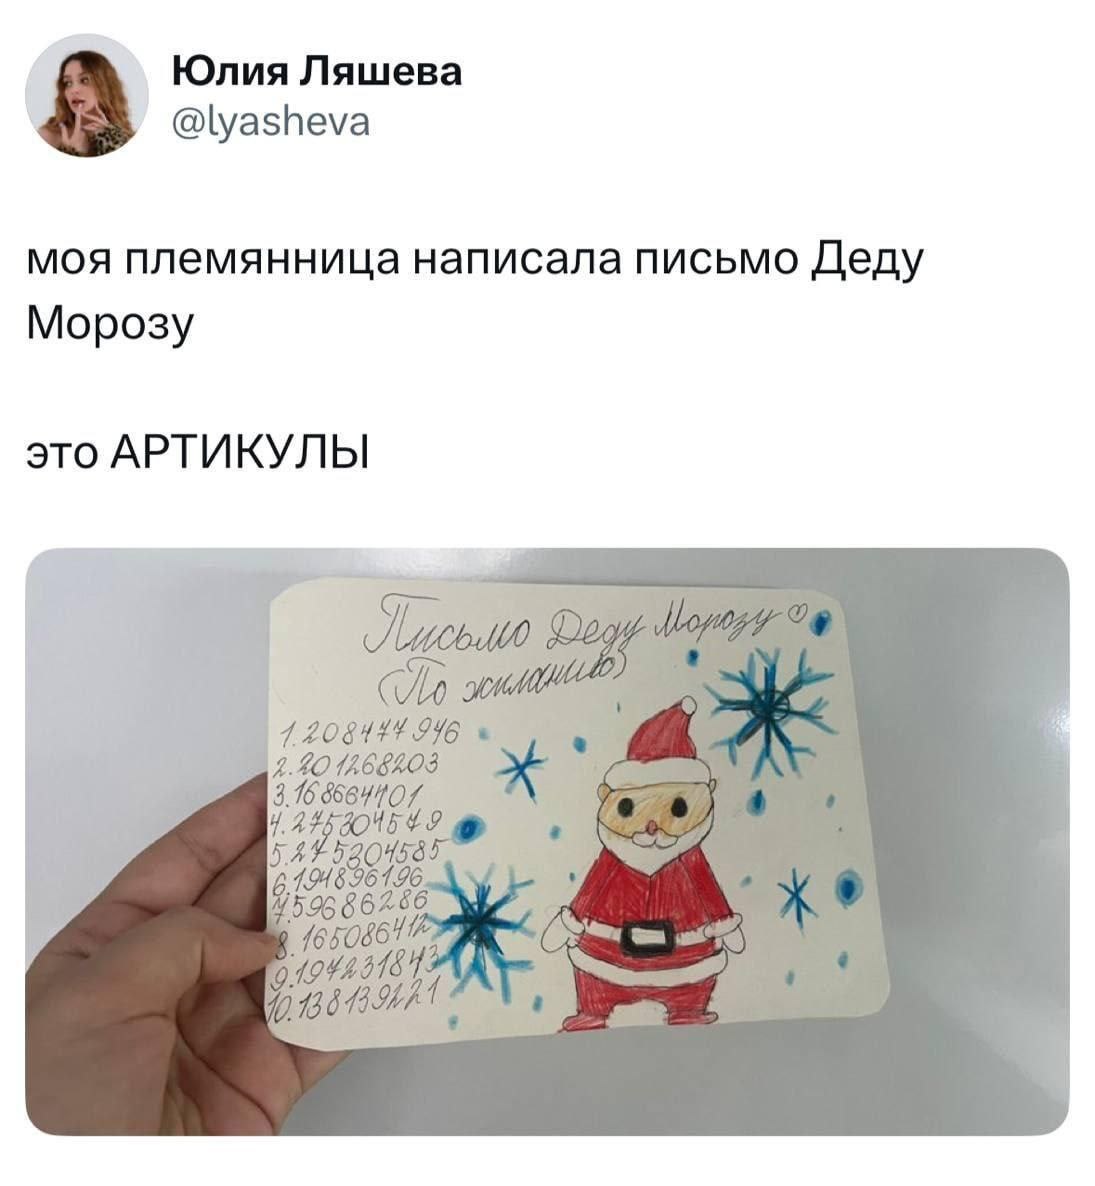 Юлия Ляшева
@lyasheva
моя племянница написала письмо Деду
Морозу
это АРТИКУЛЫ
Письмо Деду Морозу
(По жиланию)
1.208477946
2.201268203
3.168664401
4.275304579
5.275304585
6.194896196
7.59686286
8.165086412
9.194231843
10.138139221